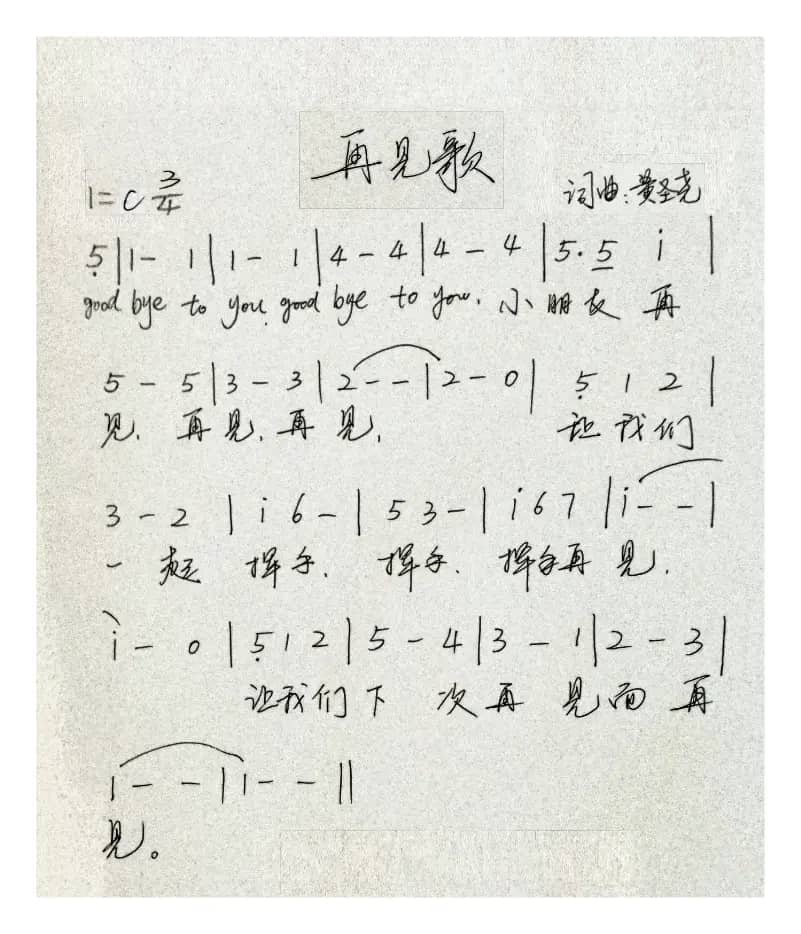 再见歌
1=C 3/4
词曲:黄圣尧
5̣|1- 1|1- 1|4-4|4-4|5·5̲ i̇|
good bye to you. good bye to you. 小朋友 再
5-5|3-3|2--|2-0| 5̣ 1 2|
见. 再见. 再见. 让我们
3-2|i̇ 6-|5 3-|i̇ 6 7|i̇--|
一起 挥手. 挥手. 挥手再见.
i̇-0|5̣ 1 2|5-4|3-1|2-3|
让我们下 次再 见面 再
1--|1--‖
见。